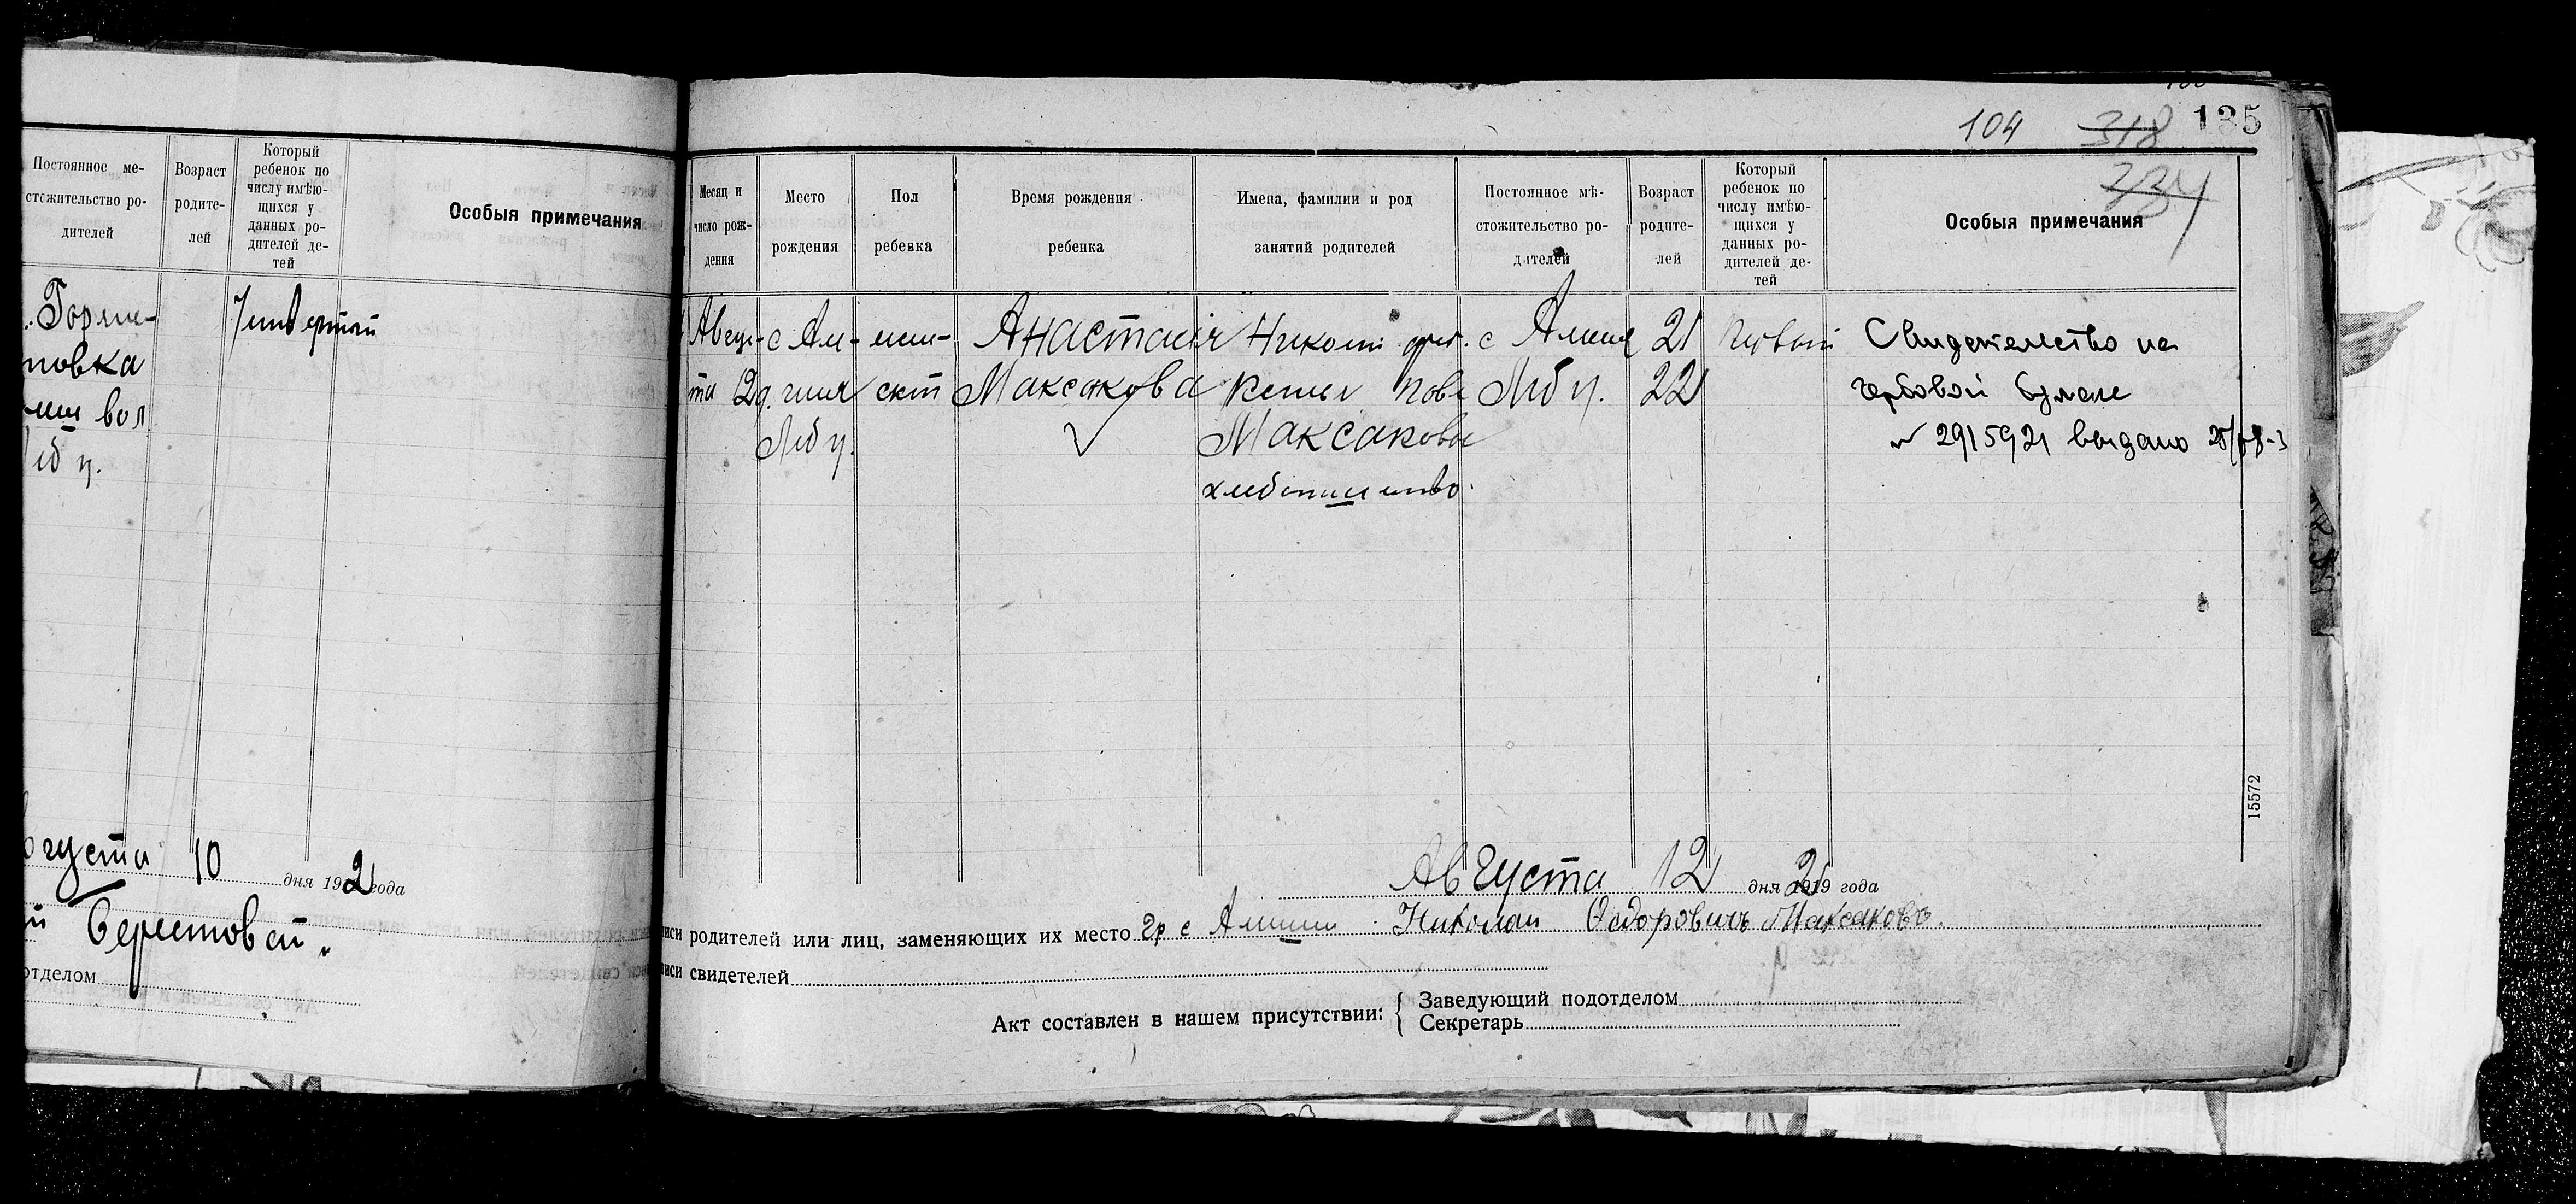 Постоянное ме-
стожительство ро-
дителей
Возраст
родите-
лей
Который
ребенок по
числу имѣю-
щихся у
данных ро-
дителей де-
тей
Особыя примечания
повка
вол
августа 10 дня 192 года
Берестовой
отделом
104 318 135
234
Месяц и
число рож-
дения
Место
рождения
Пол
ребенка
Время рождения
ребенка
Имена, фамилии и род
занятий родителей
Постоянное мѣ-
стожительство ро-
дителей
Возраст
родите-
лей
Который
ребенок по
числу имѣю-
щихся у
данных ро-
дителей де-
тей
Особыя примечания
Авгус-
та 2 д.
с Ам-
Лб у.
жен-
ски
Анастасия
Максакова
Николай
Максаковы
с
Лб у.
21
22
Первый
Свидетельство на
гербовой бумаге
№ 2915921 выдано
15572
Августа 12 дня 1919 года
писи родителей или лиц, заменяющих их место гр с Николай Ѳедорович Максаковъ.
писи свидетелей
Акт составлен в нашем присутствии:
Заведующий подотделом
Секретарь